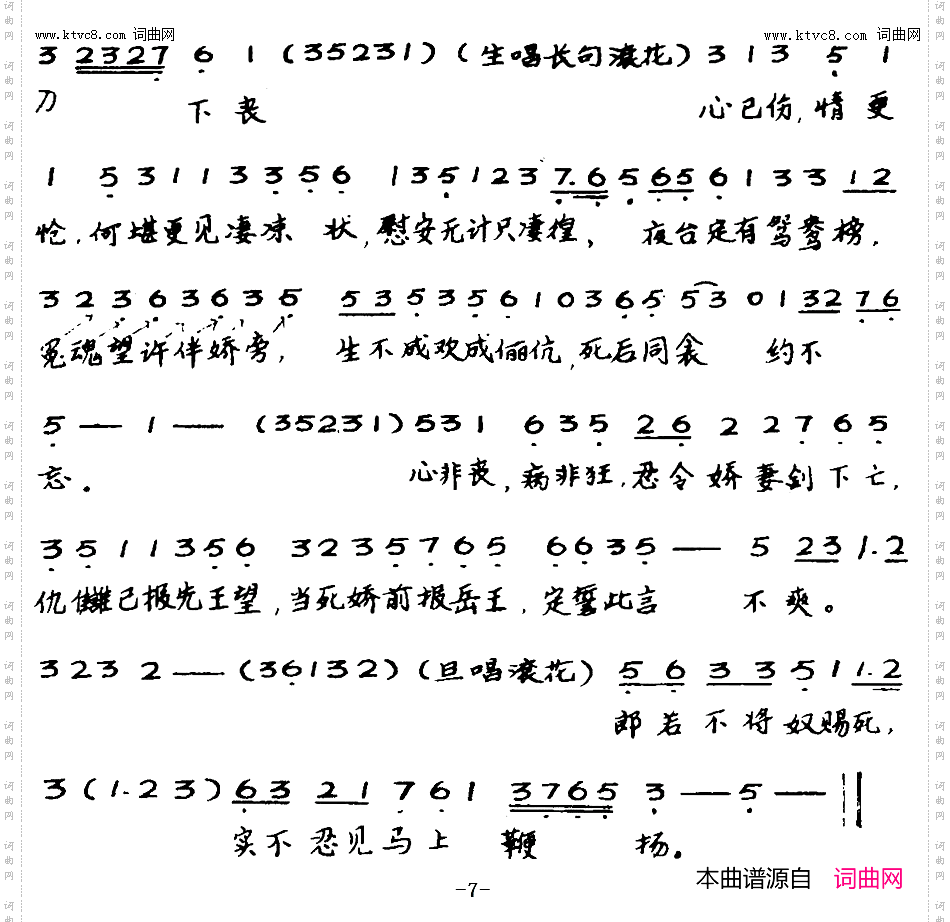 www.ktvc8.com 词曲网 www.ktvc8.com 词曲网
3 2327 6 1 (35231) (生唱长句滚花) 3 1 3 5 1
刀 下丧 心已伤, 情更
1 5 3 1 1 3 3 5 6 1 3 5 1 2 3 7.6 5 65 6 1 3 3 12
怆, 何堪更见凄凉 状, 慰安无计只凄惶、 夜台定有鸳鸯榜,
3 2 3 6 3 6 3 5 53 5 3 5 6 1 0 3 6 5 5 3 0 1 32 76
冤魂望许伴娇旁, 生不成欢成俪伉, 死后同衾 约不
5 — 1 — (35231) 5 3 1 6 3 5 26 2 2 7 6 5
忘。 心非丧, 病非狂, 忍令娇妻剑下亡,
3 5 1 1 3 5 6 3 2 3 5 7 6 5 6 6 3 5 — 5 23 1.2
仇雠已报先王望, 当死娇前报岳王, 定誓此言 不爽。
3 2 3 2 — (36132) (旦唱滚花) 56 33 5 1 1.2
郎若不将奴赐死,
3 (1.23) 63 21 7 6 1 3765 3 — 5 —
实不忍见马上 鞭 扬。
本曲谱源自 词曲网
-7-